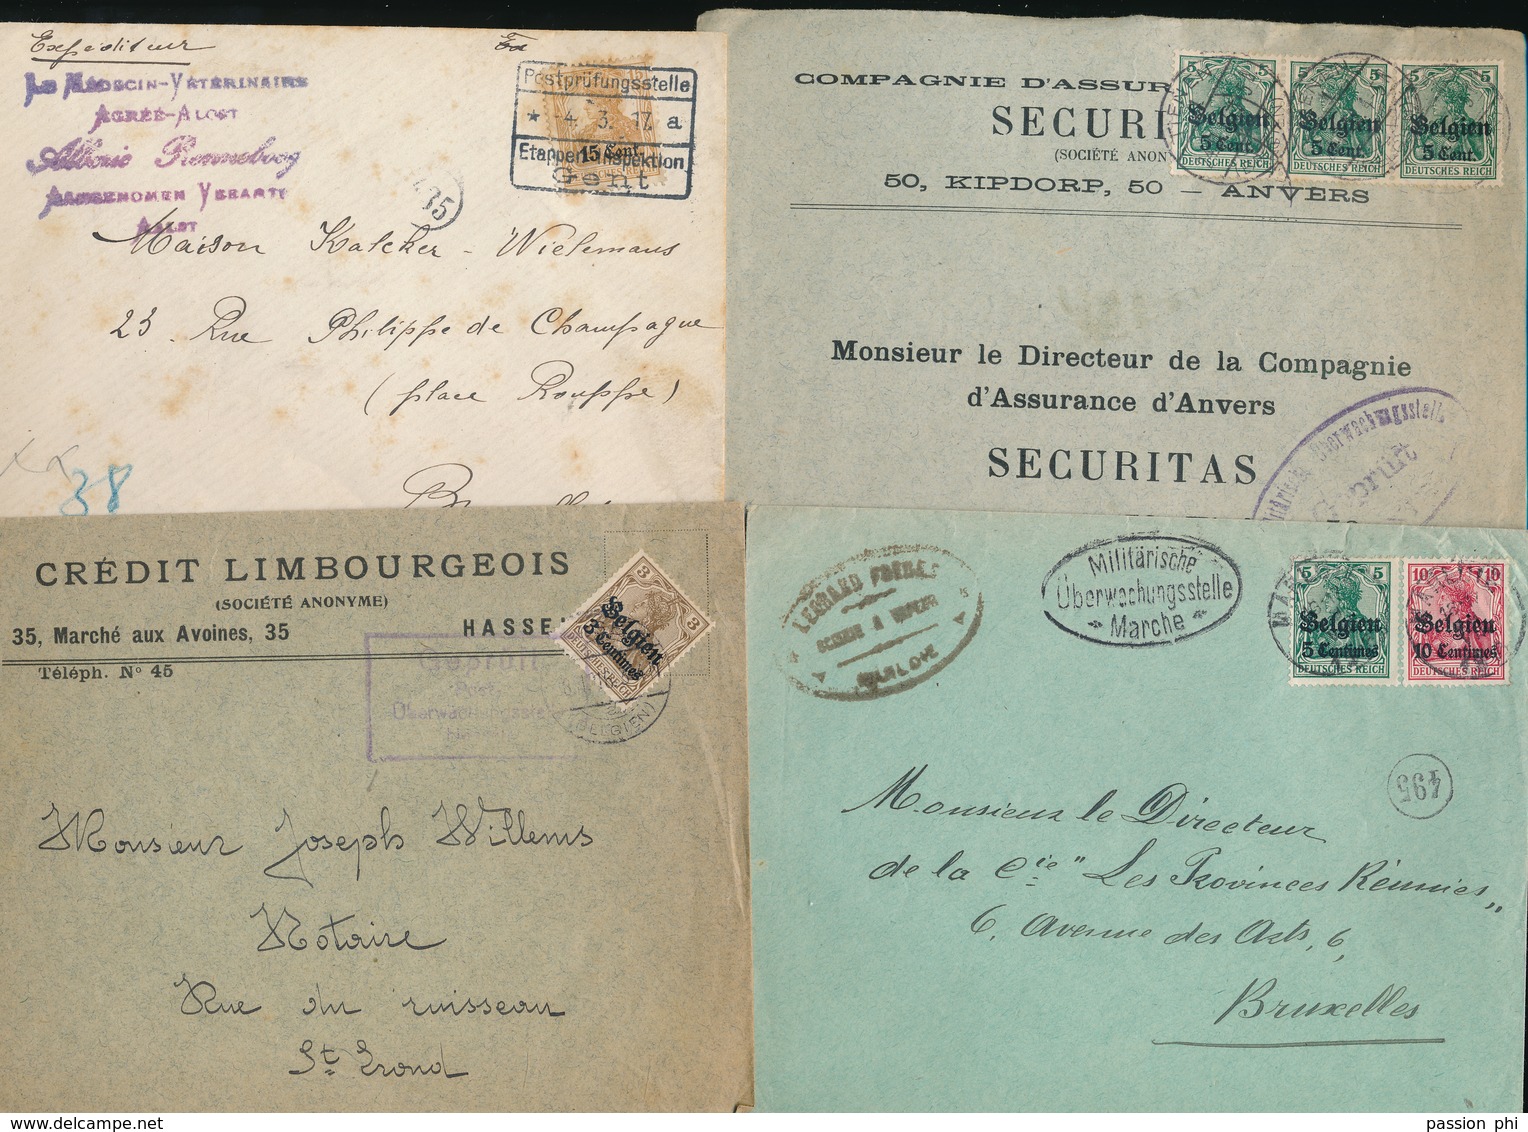 Expéditeur
Le Médecin-Vétérinaire
Agréé-Alost
Aangenomen Veearts
Aalst
Postprüfungsstelle
* -4. 3. 17. a
Etappen-Inspektion
Gent
15 Cent.
Maison Kalcker-Wielemans
23. Rue Philippe de Champagne
(place Rouppe)
38
COMPAGNIE D'ASSUR
SECURI
(SOCIÉTÉ ANON
50, KIPDORP, 50 — ANVERS
5 5
Belgien
5 Cent.
DEUTSCHES REICH
5 5
Belgien
5 Cent.
DEUTSCHES REICH
5 5
Belgien
5 Cent.
DEUTSCHES REICH
Monsieur le Directeur de la Compagnie
d'Assurance d'Anvers
SECURITAS
Überwachungsstelle
Geprüft
CRÉDIT LIMBOURGEOIS
(SOCIÉTÉ ANONYME)
35, Marché aux Avoines, 35
HASSE
Téléph. N° 45
3 3
Belgien
3 Centimes
DEUTSCHES REICH
Geprüft
Post
Überwachungsstelle
(BELGIEN)
Monsieur Joseph Willems
Notaire
Rue du ruisseau
St. Trond
LEGRAND FRÈRES
Militärische
Überwachungsstelle
Marche
5 5
Belgien
5 Centimes
DEUTSCHES REICH
10 10
Belgien
10 Centimes
DEUTSCHES REICH
495
Monsieur le Directeur
de la Cie "Les Provinces Réunies"
6, Avenue des Arts, 6,
Bruxelles
passion phi